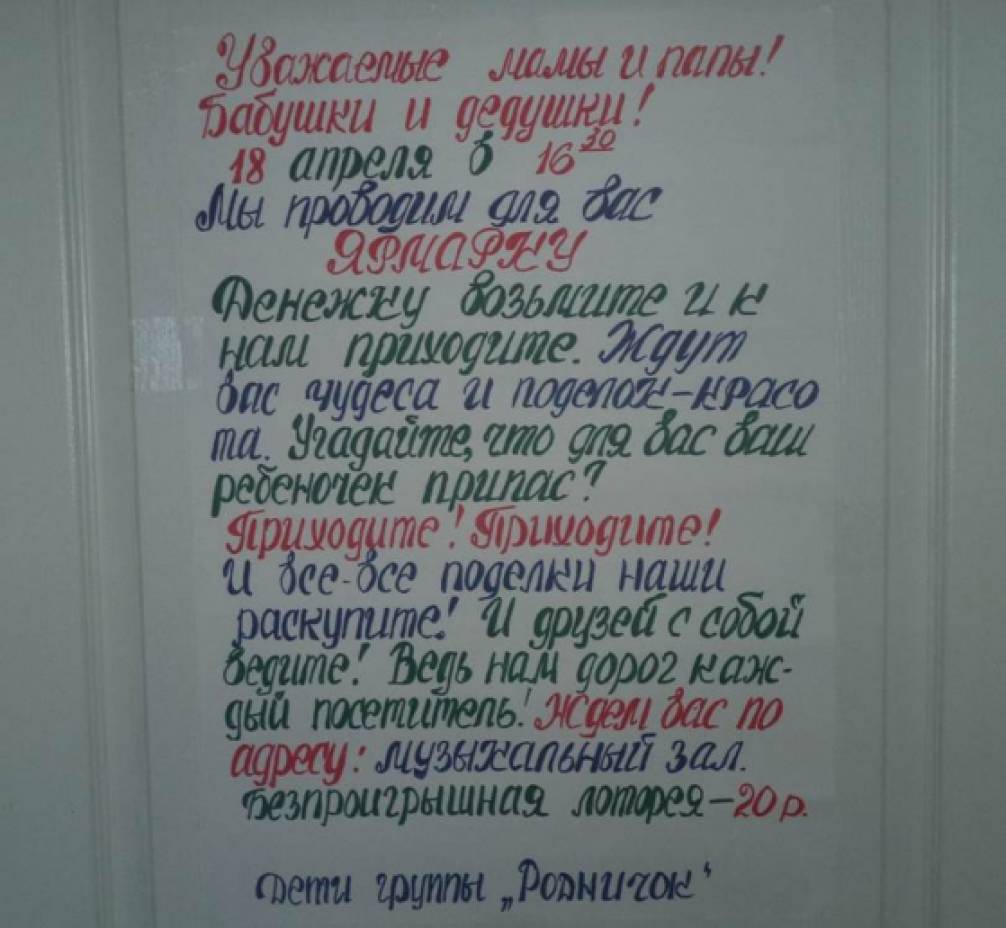 Уважаемые мамы и папы!
Бабушки и дедушки!
18 апреля в 16 30
Мы проводим для вас
ЯРМАРКУ
Денежку возьмите и к
нам приходите. Ждут
вас чудеса и поделок-красо
та. Угадайте, что для вас ваш
ребеночек припас?
Приходите! Приходите!
И все-все поделки наши
раскупите! И друзей с собой
ведите! Ведь нам дорог каж-
дый посетитель! Ждем вас по
адресу: музыкальный зал.
Безпроигрышная лоторея-20 р.
Дети группы „Родничок"